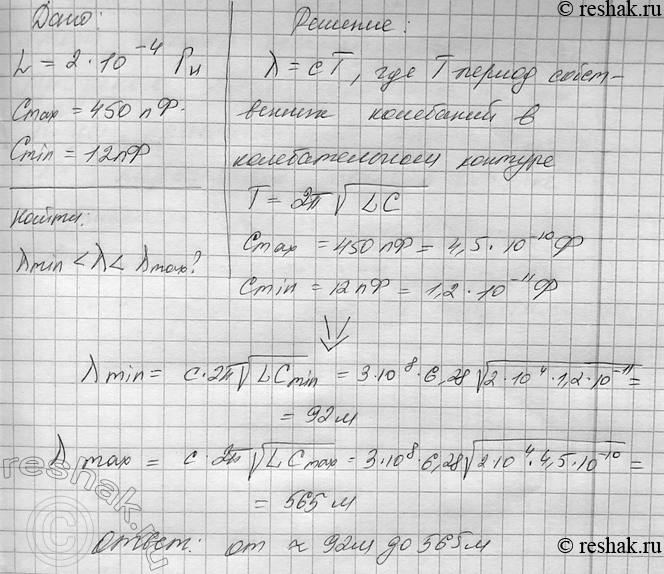 © reshak.ru
Дано:
L = 2·10⁻⁴ Гн
Cmax = 450 пФ.
Cmin = 12пФ
Найти:
λmin < λ < λmax?
Решение:
λ = cT, где T период собст-
венных колебаний в
колебательном контуре
T = 2π√LC
Cmax = 450 пФ = 4,5·10⁻¹⁰Ф
Cmin = 12 пФ = 1,2·10⁻¹¹Ф
⇓
λmin = c·2π√LCmin = 3·10⁸·6,28√2·10⁴·1,2·10⁻¹¹ =
= 92м
λmax = c·2π√LCmax = 3·10⁸·6,28√2·10⁴·4,5·10⁻¹⁰ =
= 565 м
Ответ: от ≈ 92м до 565м
reshak.ru
© reshak.ru